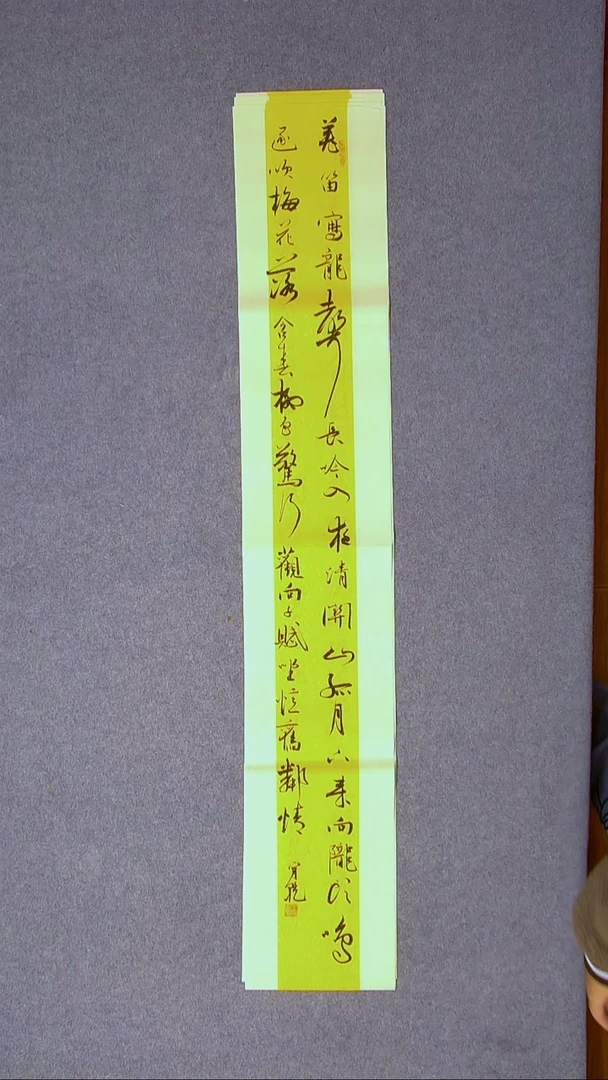 羌笛寫龍聲長吟入夜清關山孤月下来向隴頭鳴
逐吹梅花落含春柳色驚行觀向子賦坐憶舊鄰情